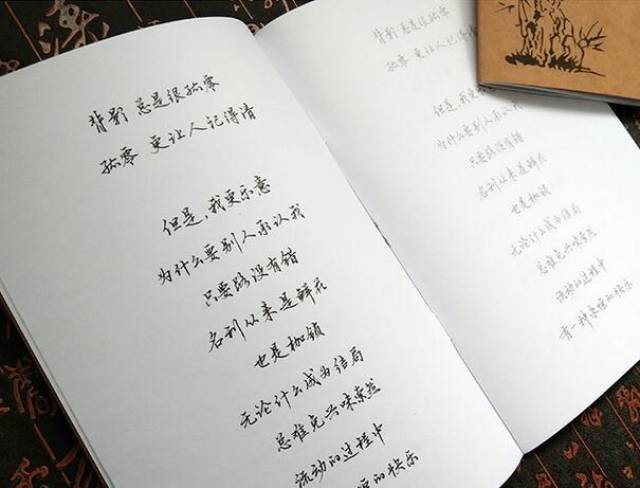 背影 总是很孤零
孤零 更让人记得清
但是,我更乐意
为什么要别人承认我
只要路没有错
名利从来是鲜花
也是枷锁
无论什么成为结局
总难免兴味索然
流动的过程中
的快乐
背影 总是很孤零
孤零 更让人记得清
但是,我更
为什么要别人承认
只要路没有错
名利从来是鲜花
也是枷锁
无论什么成为结局
总难免兴味索然
流动的过程中
有一种永恒的快乐